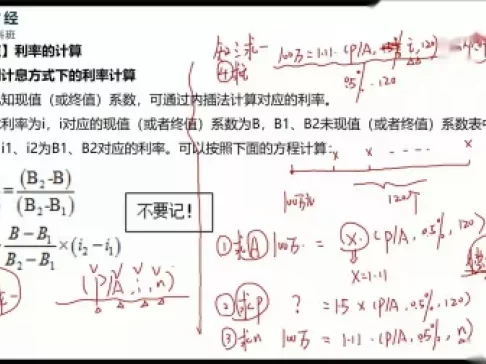 经
科班
】利率的计算
计息方式下的利率计算
知现值（或终值）系数，可通过内插法计算对应的利率。
利率为i，i对应的现值（或者终值）系数为B，B1、B2未现值（或者终值）系数表中
i1、i2为B1、B2对应的利率。可以按照下面的方程计算：
= (B₂-B) / (B₂-B₁)
(B-B₁) / (B₂-B₁) ×(i₂-i₁)
不要记！
(P/A, i, n)
100万=1.11·(P/A, i, 120)
0.5% 120
x x ---- x
100万元
120个
①求A 100万=x·(P/A, 0.5%, 120)
x=1.11
②求P ?=1.5×(P/A, 0.5%, 120)
③求n 100万=1.11·(P/A, 0.5%, n)